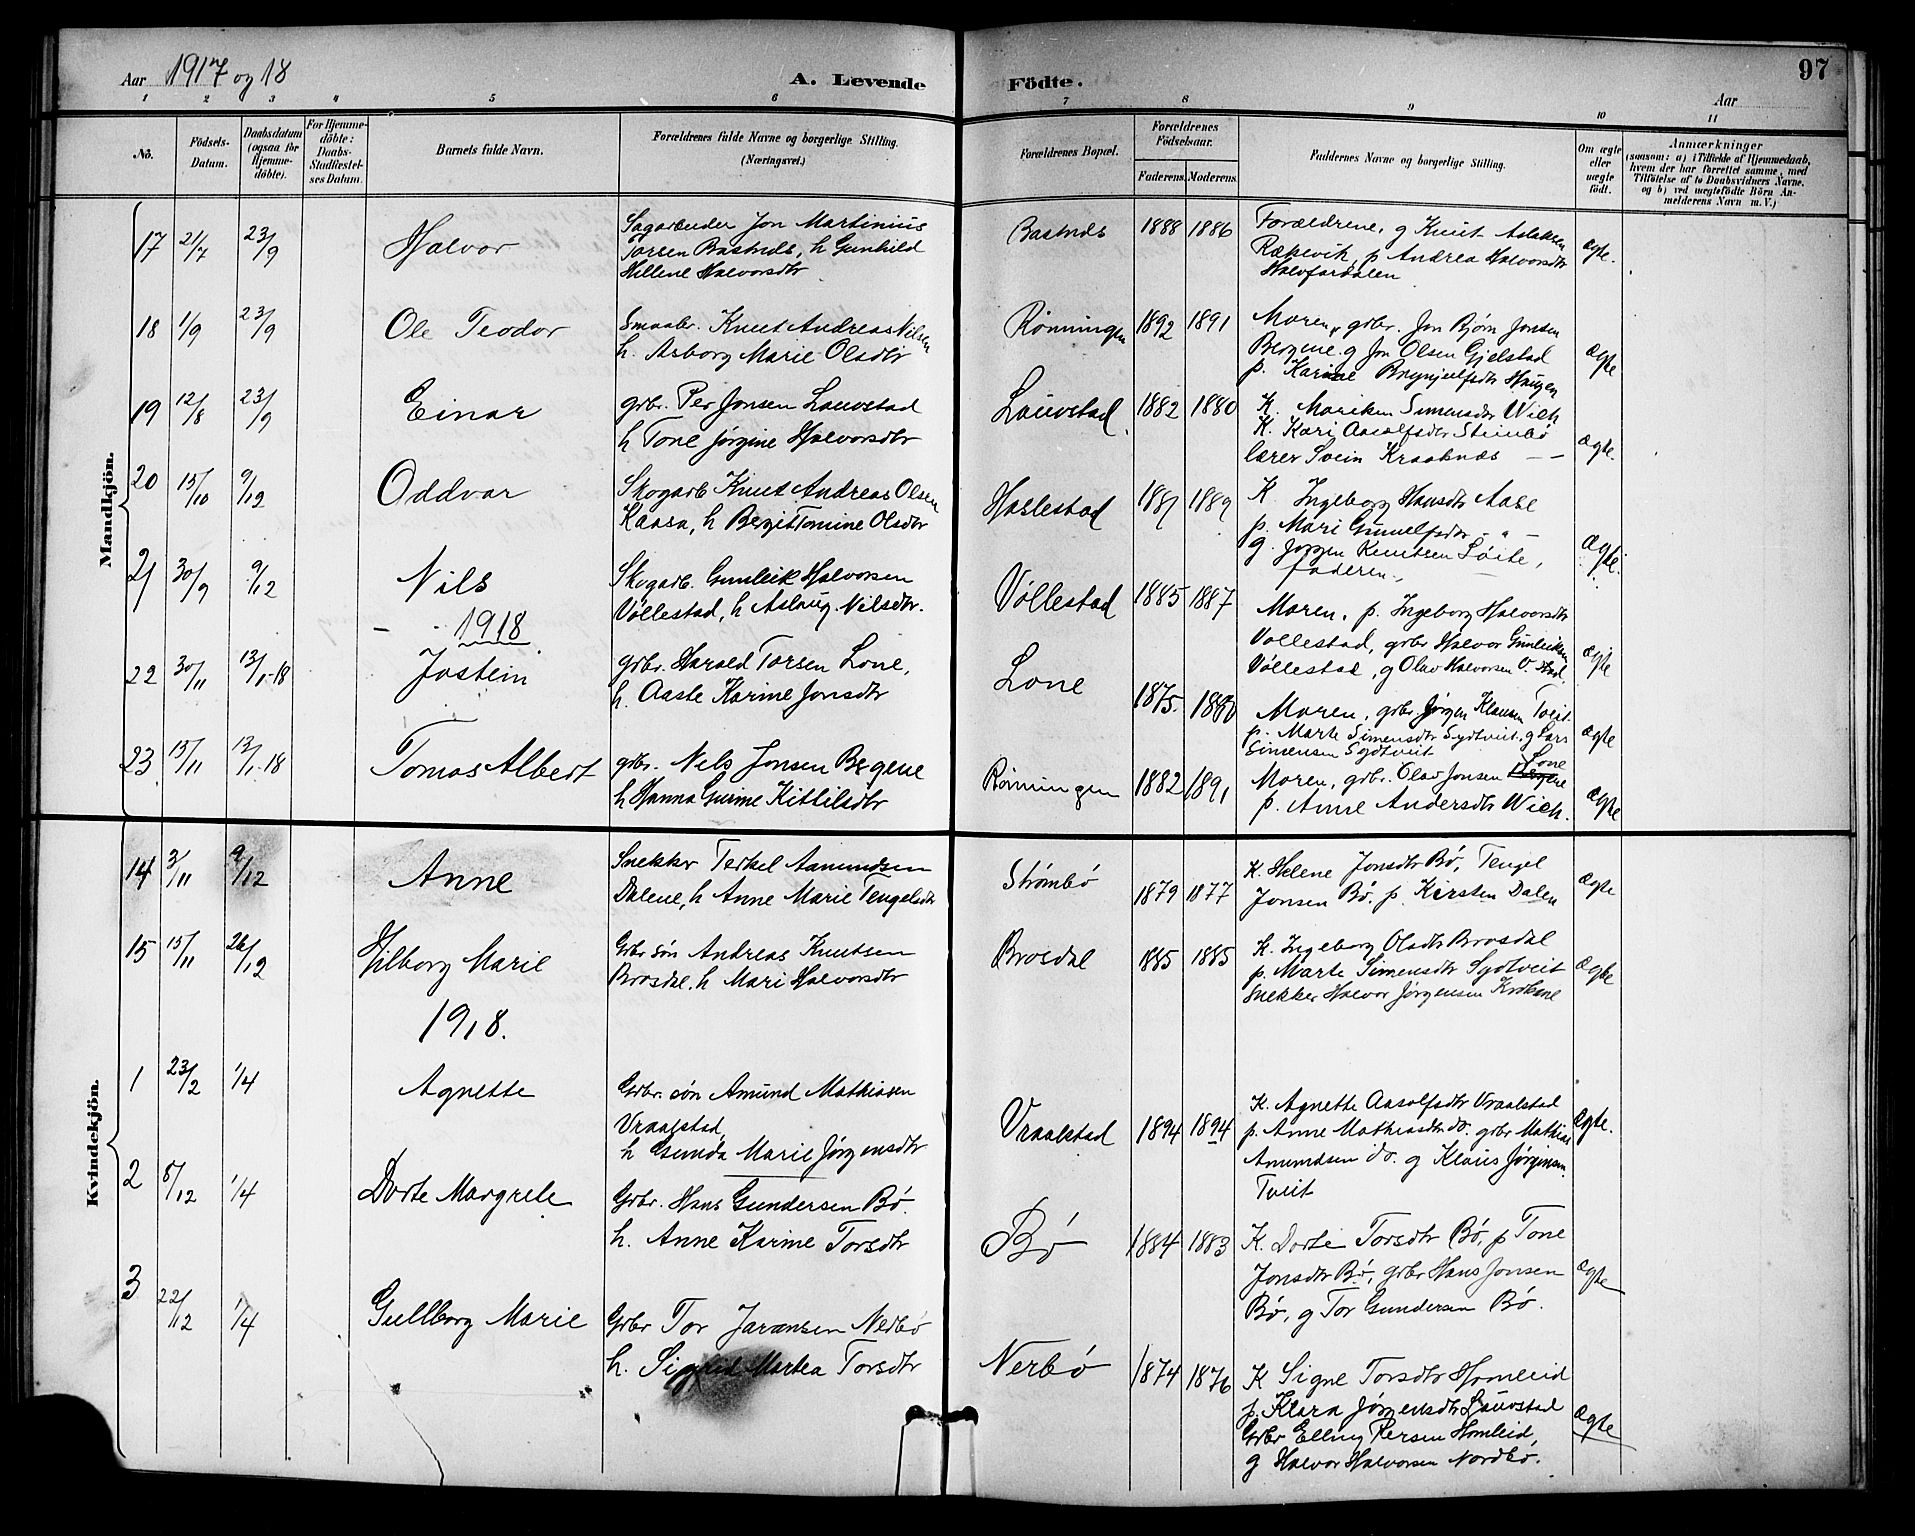 Aar 1917 og 18
A. Levende
Födte.
Aar
97
1 2 3 4 5 6 7 8 9 10 11
No.
Födsels-
Datum.
Daabsdatum
(ogsaa for
Hjemme-
döbte).
For Hjemme-
döbte:
Daabs-
Stadfestel-
ses Datum.
Barnets fulde Navn.
Forældrenes fulde Navne og borgerlige Stilling.
(Næringsvei.)
Forældrenes Bopæl.
Forældrenes
Födselsaar.
Faderens. Moderens.
Faddernes Navne og borgerlige Stilling.
Om ægte
eller
uægte
födt.
Anmærkninger
(saasom: a) i Tilfælde af Hjemmedaab,
hvem der har forrettet samme, med
Tilföielse af to Daabsvidners Navne,
og b) ved uægtefödte Börn An-
melderens Navn m. V.)
Mandkjön.
17 21/7 23/9 Halvor
Sagarbeider Jon Martinius
Torsen Bastnds, h Gunhild
Hellene Halvorsdtr
Bastnds 1888 1886
Forældrene, g Knut Aslaksen
Rækevik, p Andrea Halvorsdtr
Halvfardalen
ægte.
18 1/9 23/9 Ole Teodor
Smaabr. Knut Andreas Nilsen
h. Asborg Marie Olsdtr
Rönningen 1892 1891
Moren, grbr. Jon Bjørn Jonsen
Bergene. g Jon Olsen Gjelstad
p. Karine Brynjulfsdtr Haugen
ægte
19 12/8 23/9 Einar
grbr. Per Jonsen Lauvstad
h Tone Jørgine Halvorsdtr
Lauvstad 1882 1880
K. Mariken Simensdtr Wich
K. Kari Aasolfsdtr Steinbö
lærer Svein Kraaknæs — —
ægte.
20 15/10 9/12 Oddvar
Skogarb Knut Andreas Olsen
Kaasa, h Bergit Tomine Olsdtr
Haslestad 1887 1889
K. Ingeborg Hansdtr Aase
p. Mari Gunulfsdtr - " -
g. Jørgen Knutsen Löite,
faderen.
Ægte.
21 30/9 9/12 Nils
Skogarb. Gunleik Halvorsen
Völlestad, h Aslaug Nilsdtr.
Völlestad 1885 1887
Moren, p. Ingeborg Halvorsdtr
Vollestad, grbr Halvor Gunleiksen
Völlestad, g Olav Halvorsen
ægte
1918
22 30/11 13/1-18 Jostein
grbr. Harald Torsen Lone,
h. Aaste Karine Jonsdtr
Lone 1875. 1880
Moren, grbr. Jørgen Klausen Tveit.
p. Marte Simensdtr Sydtveit. g Lars
Simensen Sydtveit
ægte
23 15/11 13/1-18 Tomas Albert
grbr. Nels Jonsen Bergene
h Hanna Gurine Kittilsdtr
Rönningen 1882 1891
Moren, grbr. Olav Jonsen Lone
p. Anne Andersdtr Wich.
ægte
Kvindekjön.
14 3/11 9/12 Anne
Snekker Terkel Aamundsen
Dalene, h Anne Marie Tengelsdtr
Strömbö 1879 1877
K. Helene Jonsdtr Bö, Tengel
Jonsen Bö. p. Kirsten Dalen
ægte
15 15/11 26/12 Vilborg Marie
Grbr sön Andreas Knutsen
Brosdal, h Mari Halvorsdtr
Brosdal 1885 1885
K. Ingeborg Olsdtr Brosdal
p. Marte Simensdtr Sydtveit
Snekker Halvor Jørgensen Krokene
Ægte
1918.
1 23/2 1/4 Agnette
Grbr. sön Amund Mathiasen
Vraalstad,
h Gunda Marie Jørgensdtr
Vraalstad 1894 1894
K. Agnette Aasolfsdtr Vraalstad
p. Anne Mathiasdtr do. grbr Mathias
Amundsen do. g Klaus Jørgensen
Tveit
Ægte.
2 5/12 1/4 Dorte Margrete
Grbr. Hans Gundersen Bö.
h. Anne Karine Torsdtr
Bö 1884 1883
K. Dorte Torsdtr Bö, p Tone
Jonsdtr Bö, grbr Hans Jonsen
Bö, g Tor Gundersen Bö.
ægte
3 22/12 1/4 Gullborg Marie
Grbr Tor Jaransen Nerbö
h. Sigrid Martea Torsdtr
Nerbö 1874 1876
K Signe Torsdtr Homleid
p. Klara Jørgensdtr Lauvstad
Grbr Elling Persen Homleid,
g Halvor Halvorsen Nordbö.
ægte